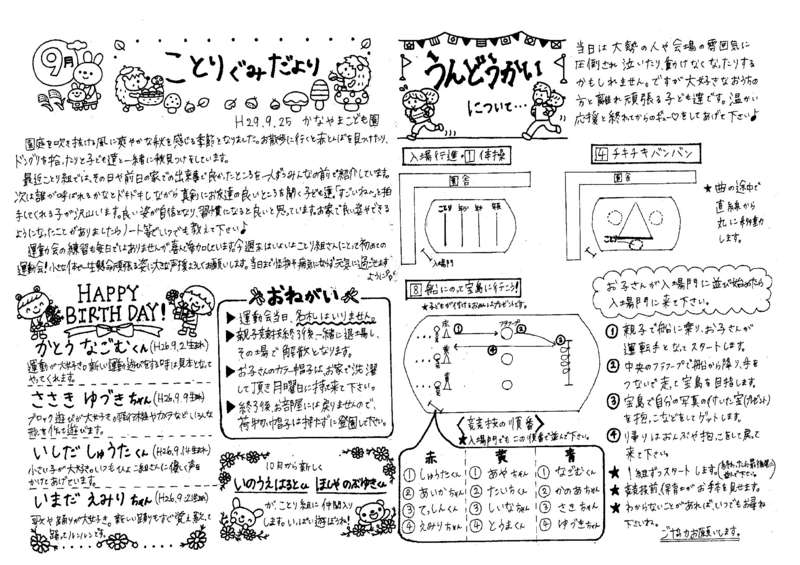 9月
ことりぐみだより
H29.9.25 かなやまこども園
園庭を吹き抜ける風に爽やかな秋を感じる季節となりました。お散歩に行くと赤とんぼを見つけたり、
ドングリを拾ったりと子ども達と一緒に秋見つけをしています。
最近ことり組では、その日や前日の家での出来事で良かったところを一人ずつみんなの前で紹介しています。
次は誰が呼ばれるかなとドキドキしながら真剣にお友達の良いところを聞く子ども達。「すごいね」と拍
手してくれる子が沢山います。良い姿が自信となり、習慣になると良いと思っています。お家で良い姿ができる
ようになったことがありましたらノート等でいつでも教えて下さい♪
運動会の練習も毎日ではありませんが喜んで参加しています。今週末はいよいよことり組さんにとって初めての
運動会!小さな体で一生懸命頑張る姿に大きな声援よろしくお願いします。当日まで怪我や病気になら
ず元気に過ごせます
ように
HAPPY
BIRTH DAY!
かとう なごむくん(H26.9.2生まれ)
運動が大好き。新しい運動遊びをする時は見本となって
やってくれます。
ささき ゆづきちゃん(H26.9.9生まれ)
ブロック遊びが大好き
形を作って遊びます。
いしだ しゅうたくん(H26.9.14生まれ)
小さい子が大好き。いつもひよこ組さんに優しく声を
かけてあげています。
いまだ えみりちゃん(H26.9.2生まれ)
歌や踊りが大好き。新しい踊りもすぐ覚え歌って
踊ってルンルンです。
おねがい
▶運動会当日、名札はいりません。
▶親子競技終了後一緒に退場し、
その場で解散となります。
▶お子さんのカラー帽子は、お家で洗濯
して頂き月曜日に持って来て下さい。
▶終了後、お部屋には戻りませんので、
荷物や帽子は持たずに登園して下さい。
10月から新しく
いのうえはるとくん ほしやのぶゆきくん
が、ことり組に仲間入り
します。いっぱい遊ぼうね!
うんどうかい
について…
当日は大勢の人や会場の雰囲気に
圧倒され泣いたり、動けなくなったりする
かもしれません。ですが大好きなおうちの
方と離れ頑張る子ども達です。温かい
応援と終わってからのぎゅーっをしてあげて下さい♪
入場行進・1体操
園舎
ことり
入場門
4 チキチキバンバン
園舎
ことり
★曲の途中で
直線から
丸に移動
します。
8 船にのって宝島に行こう!
赤
黄
青
① ② ③ ④
フラフープ
《競技の順番》
★入場門でもこの順番で並んで下さい。
赤 黄 青
①しゅうたくん ①あやちゃん ①なごむくん
②あいかちゃん ②たいちくん ②かのあちゃん
③てっしんくん ③しいなちゃん ③さきちゃん
④えみりちゃん ④とうまくん ④ゆづきちゃん
お子さんが入場門に並び始めたら
入場門に来て下さい。
①親子で船に乗り、お子さんが
運転手となってスタートします。
②中央のフラフープで船から降り、手を
つないで走って宝島を目指します。
③宝島で自分の写真の付いた宝(プレゼント)
を抱っこなどをしてゲットします。
④帰りはおんぶや抱っこをして戻って
来て下さい。
★1組ずつスタートします。
★競技前、保育者がお手本を見せます。
★わからないことがあれば、いつでもお尋ね
下さいね。
ご協力お願いします。